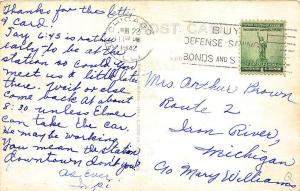 Thanks for the letter
& Card.
Tay 6:45 is rather
early to be at the
station so could you
meet us a little later
there. Wait or else
come back at about
8:30 unless Elmer
can take the car.
He maybe working
You mean the station
downtown don't you?
As Ever,
CHICAGO
JUN 22
1942
POST CARD
BUY
DEFENSE SAVINGS
BONDS AND S
Mrs Arthur Brown
Route 2
Iron River,
Michigan
c/o Mary Williams